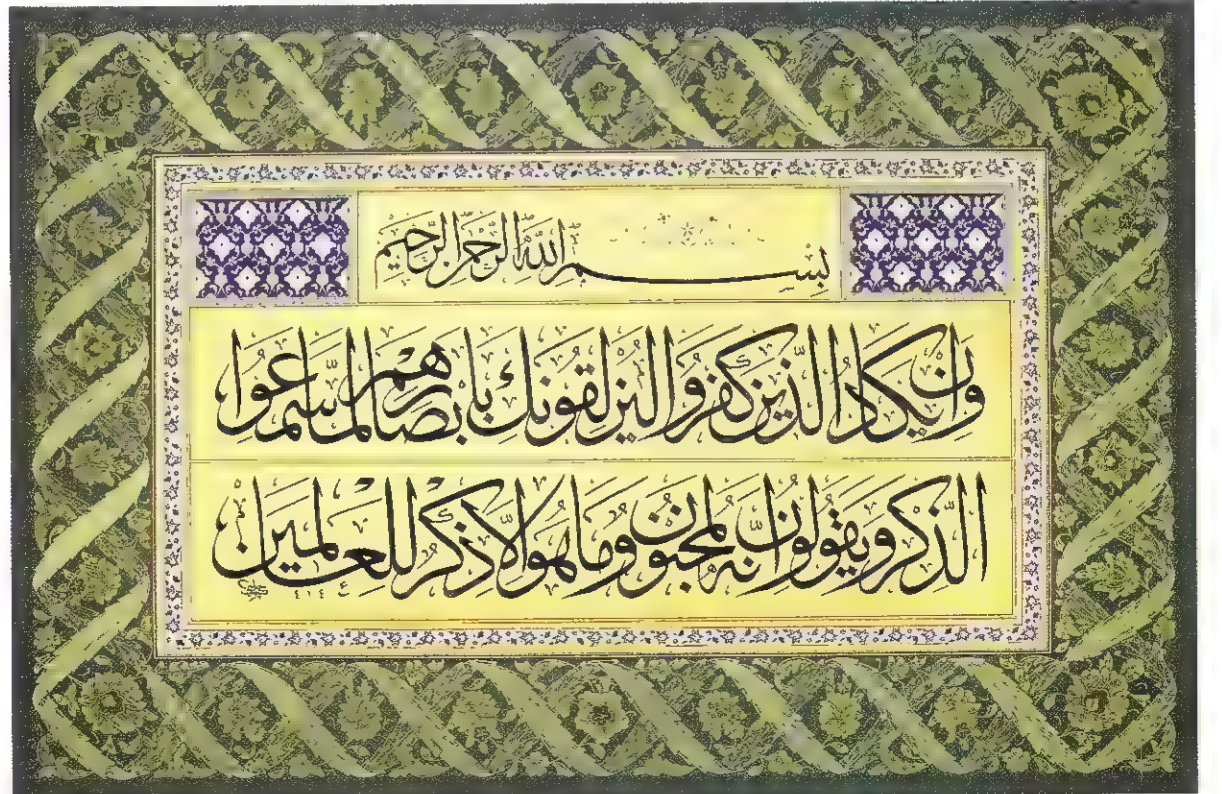 بِسْمِ اللهِ الرَّحْمٰنِ الرَّحِيمِ
وَإِنْ يَكَادُ الَّذِينَ كَفَرُوا لَيُزْلِقُونَكَ بِأَبْصَارِهِمْ لَمَّا سَمِعُوا
الذِّكْرَ وَيَقُولُونَ إِنَّهُ لَمَجْنُونٌ وَمَا هُوَ إِلَّا ذِكْرٌ لِلْعَالَمِينَ